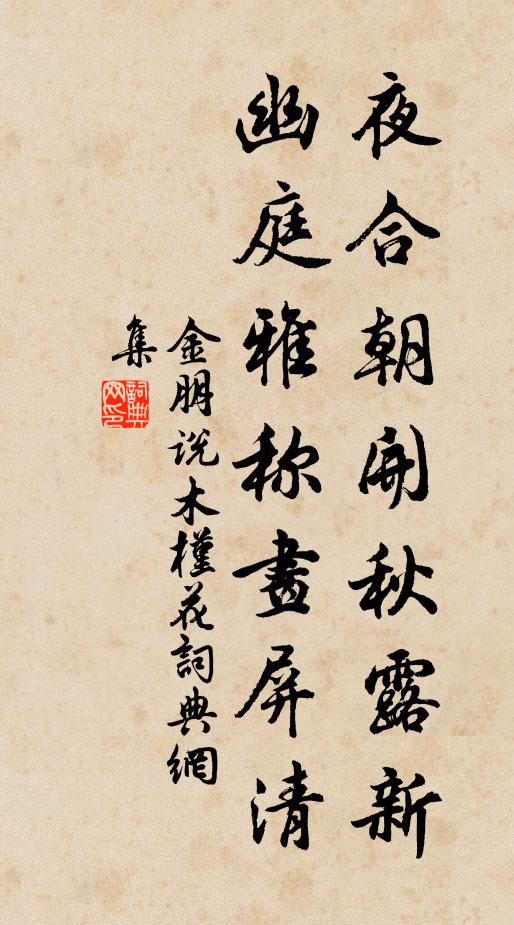 夜合朝開秋露新
幽庭雅称畫屏清
金朋说木槿花詞典網
集
詞典
网印